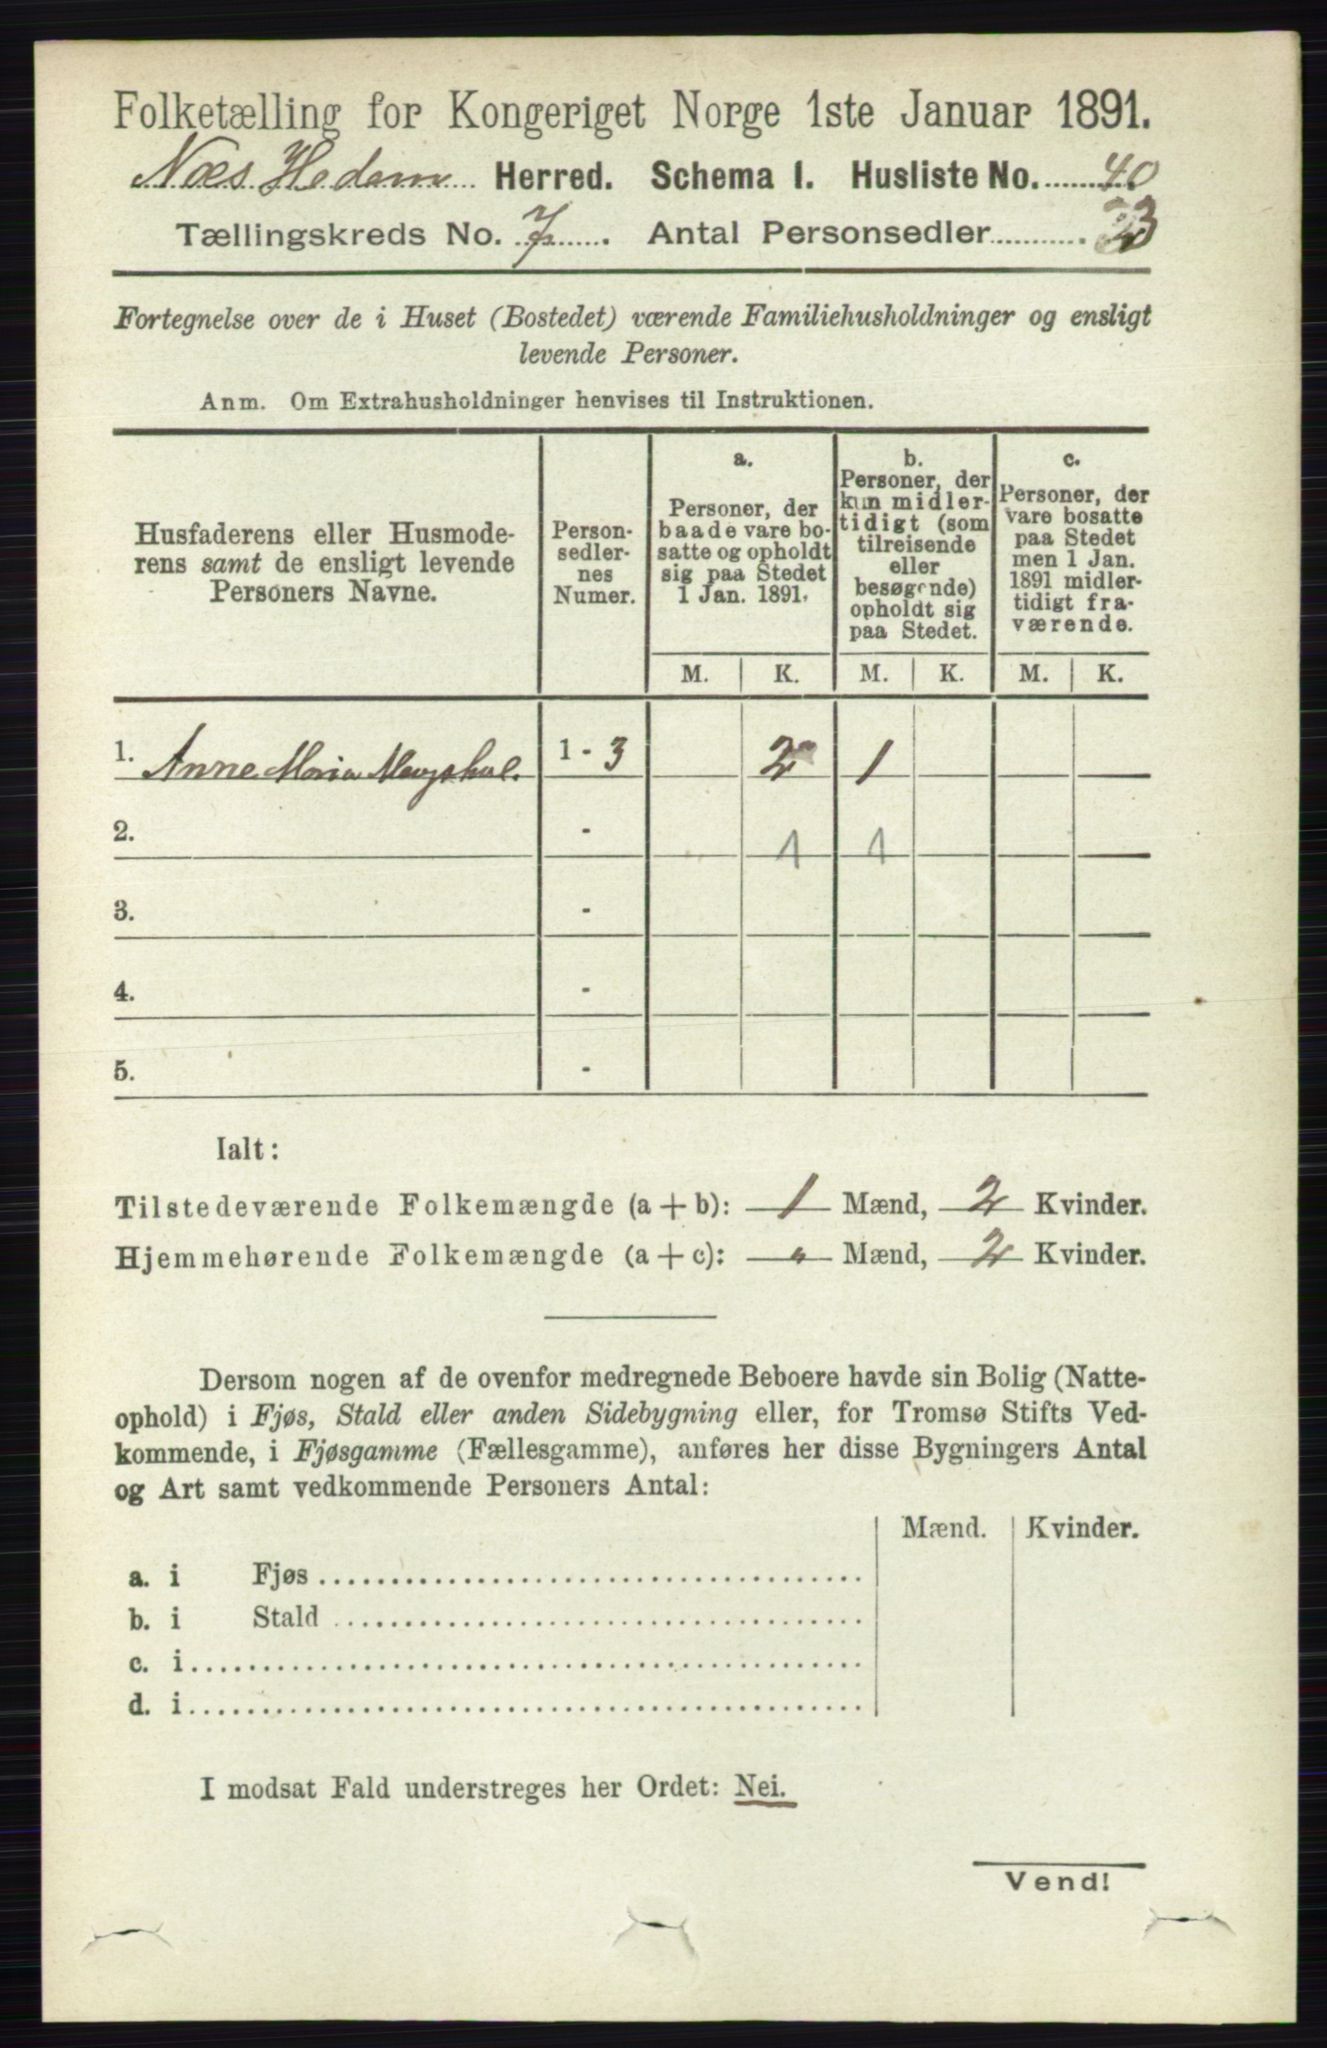 Folketælling for Kongeriget Norge 1ste Januar 1891.
Næs Hedem Herred. Schema I. Husliste No. 40
Tællingskreds No. 7. Antal Personsedler
Fortegnelse over de i Huset (Bostedet) værende Familiehusholdninger og ensligt
levende Personer.
Anm. Om Extrahusholdninger henvises til Instruktionen.
Husfaderens eller Husmode-
rens samt de ensligt levende
Personers Navne.
Person-
sedler-
nes
Numer.
a.
Personer, der
baade vare bo-
satte og opholdt
sig paa Stedet
1 Jan. 1891.
b.
Personer, der
kun midler-
tidigt (som
tilreisende
eller
besøgende)
opholdt sig
paa Stedet.
c.
Personer, der
vare bosatte
paa Stedet
men 1 Jan.
1891 midler-
tidigt fra-
værende.
M. K. M. K. M. K.
1. Anne Maria 1 - 3 2 1
2. - 1 1
3. -
4. -
5. -
Ialt:
Tilstedeværende Folkemængde (a + b): 1 Mænd, 2 Kvinder.
Hjemmehørende Folkemængde (a + c): " Mænd, 2 Kvinder.
Dersom nogen af de ovenfor medregnede Beboere havde sin Bolig (Natte-
ophold) i Fjøs, Stald eller anden Sidebygning eller, for Tromsø Stifts Ved-
kommende, i Fjøsgamme (Fællesgamme), anføres her disse Bygningers Antal
og Art samt vedkommende Personers Antal:
Mænd. Kvinder.
a. i Fjøs
b. i Stald
c. i
d. i
I modsat Fald understreges her Ordet: Nei.
Vend!